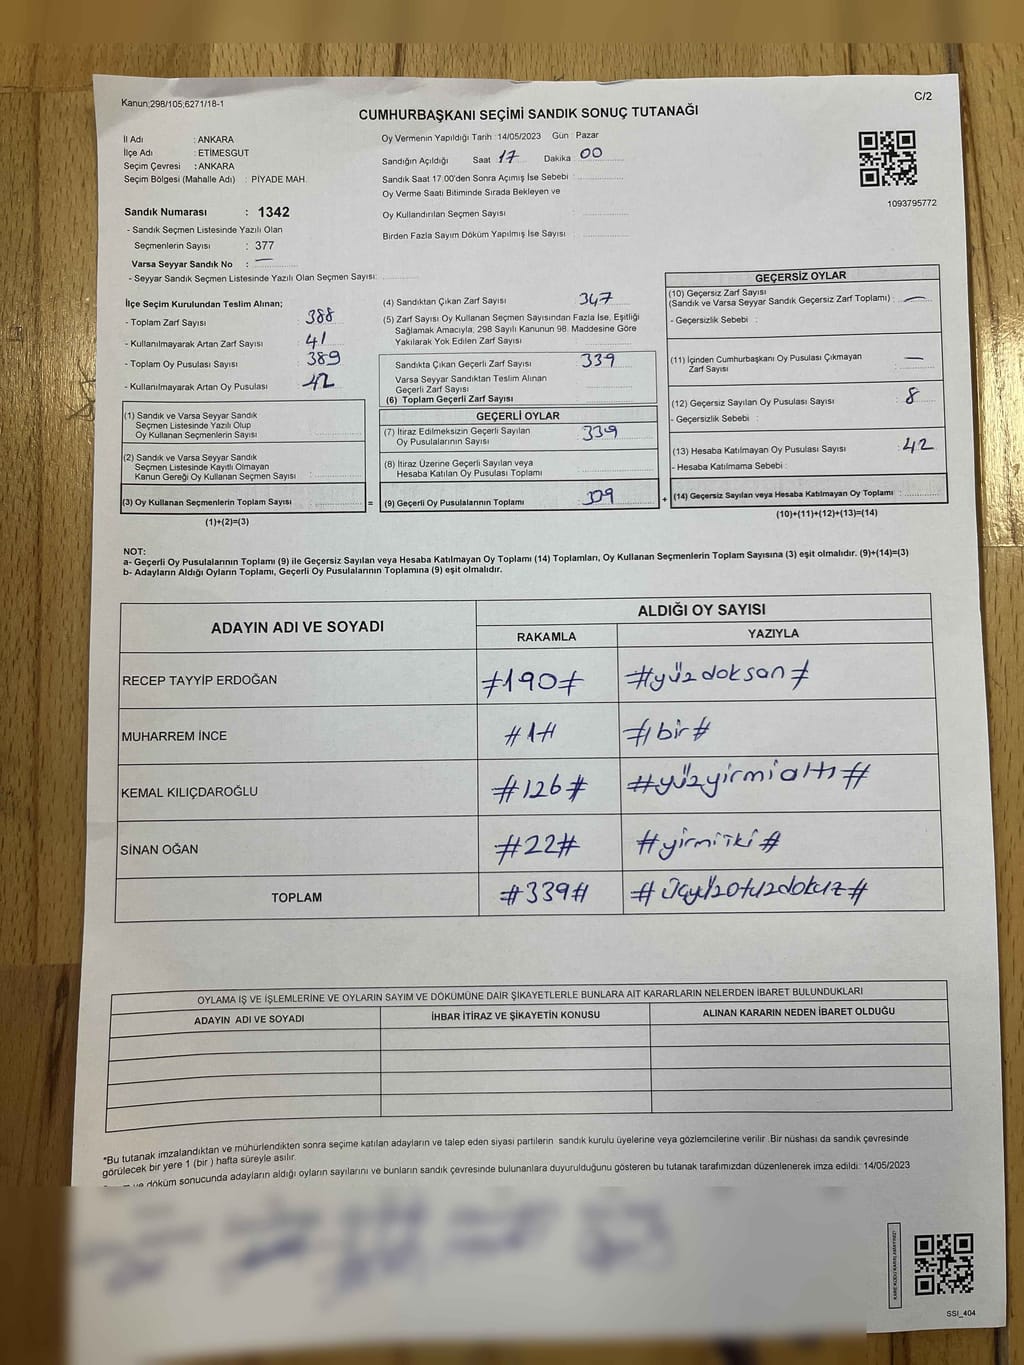 Kanun;298/105,6271/18-1
C/2
CUMHURBAŞKANI SEÇİMİ SANDIK SONUÇ TUTANAĞI
İl Adı : ANKARA
İlçe Adı : ETİMESGUT
Seçim Çevresi : ANKARA
Seçim Bölgesi (Mahalle Adı) : PİYADE MAH.
Oy Vermenin Yapıldığı Tarih :14/05/2023 Gün : Pazar
Sandığın Açıldığı Saat 17 Dakika 00
Sandık Saat 17.00'den Sonra Açımış İse Sebebi :
Oy Verme Saati Bitiminde Sırada Bekleyen ve
Oy Kullandırılan Seçmen Sayısı :
Birden Fazla Sayım Döküm Yapılmış İse Sayısı :
1093795772
Sandık Numarası : 1342
- Sandık Seçmen Listesinde Yazılı Olan
Seçmenlerin Sayısı : 377
Varsa Seyyar Sandık No : —
- Seyyar Sandık Seçmen Listesinde Yazılı Olan Seçmen Sayısı:
İlçe Seçim Kurulundan Teslim Alınan;
- Toplam Zarf Sayısı 388
- Kullanılmayarak Artan Zarf Sayısı : 41
- Toplam Oy Pusulası Sayısı : 389
- Kullanılmayarak Artan Oy Pusulası : 42
(1) Sandık ve Varsa Seyyar Sandık
Seçmen Listesinde Yazılı Olup
Oy Kullanan Seçmenlerin Sayısı :
(2) Sandık ve Varsa Seyyar Sandık
Seçmen Listesinde Kayıtlı Olmayan
Kanun Gereği Oy Kullanan Seçmen Sayısı :
(3) Oy Kullanan Seçmenlerin Toplam Sayısı : =
(1)+(2)=(3)
(4) Sandıktan Çıkan Zarf Sayısı : 347
(5) Zarf Sayısı Oy Kullanan Seçmen Sayısından Fazla İse, Eşitliği
Sağlamak Amacıyla, 298 Sayılı Kanunun 98. Maddesine Göre
Yakılarak Yok Edilen Zarf Sayısı :
Sandıkta Çıkan Geçerli Zarf Sayısı : 339
Varsa Seyyar Sandıktan Teslim Alınan
Geçerli Zarf Sayısı :
(6) Toplam Geçerli Zarf Sayısı :
GEÇERLİ OYLAR
(7) İtiraz Edilmeksizin Geçerli Sayılan
Oy Pusulalarının Sayısı : 339
(8) İtiraz Üzerine Geçerli Sayılan veya
Hesaba Katılan Oy Pusulası Toplamı :
(9) Geçerli Oy Pusulalarının Toplamı : 339 +
GEÇERSİZ OYLAR
(10) Geçersiz Zarf Sayısı
(Sandık ve Varsa Seyyar Sandık Geçersiz Zarf Toplamı) : —
- Geçersizlik Sebebi :
(11) İçinden Cumhurbaşkanı Oy Pusulası Çıkmayan
Zarf Sayısı : —
(12) Geçersiz Sayılan Oy Pusulası Sayısı : 8
- Geçersizlik Sebebi :
(13) Hesaba Katılmayan Oy Pusulası Sayısı : 42
- Hesaba Katılmama Sebebi :
(14) Geçersiz Sayılan veya Hesaba Katılmayan Oy Toplamı :
(10)+(11)+(12)+(13)=(14)
NOT:
a- Geçerli Oy Pusulalarının Toplamı (9) ile Geçersiz Sayılan veya Hesaba Katılmayan Oy Toplamı (14) Toplamları, Oy Kullanan Seçmenlerin Toplam Sayısına (3) eşit olmalıdır. (9)+(14)=(3)
b- Adayların Aldığı Oyların Toplamı, Geçerli Oy Pusulalarının Toplamına (9) eşit olmalıdır.
ADAYIN ADI VE SOYADI
ALDIĞI OY SAYISI
RAKAMLA YAZIYLA
RECEP TAYYİP ERDOĞAN #190# #yüz doksan#
MUHARREM İNCE #1# #bir#
KEMAL KILIÇDAROĞLU #126# #yüzyirmialtı#
SİNAN OĞAN #22# #yirmiiki#
TOPLAM #339# #üçyüzotuzdokuz#
OYLAMA İŞ VE İŞLEMLERİNE VE OYLARIN SAYIM VE DÖKÜMÜNE DAİR ŞİKAYETLERLE BUNLARA AİT KARARLARIN NELERDEN İBARET BULUNDUKLARI
ADAYIN ADI VE SOYADI İHBAR İTİRAZ VE ŞİKAYETİN KONUSU ALINAN KARARIN NEDEN İBARET OLDUĞU
*Bu tutanak imzalandıktan ve mühürlendikten sonra seçime katılan adayların ve talep eden siyasi partilerin sandık kurulu üyelerine veya gözlemcilerine verilir .Bir nüshası da sandık çevresinde
görülecek bir yere 1 (bir ) hafta süreyle asılır.
ve döküm sonucunda adayların aldığı oyların sayılarını ve bunların sandık çevresinde bulunanlara duyurulduğunu gösteren bu tutanak tarafımızdan düzenlenerek imza edildi: 14/05/2023
SSI_404